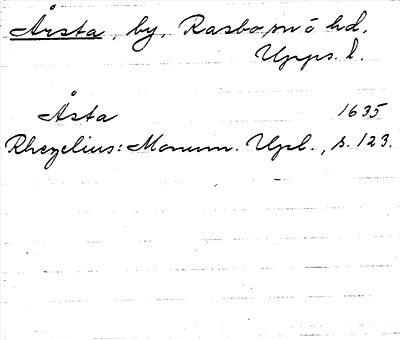 Årsta, by, Rasbo snö hd.
Upps. l.
Åsta 1635
Rhezelius: Monum. Upl., s. 123.